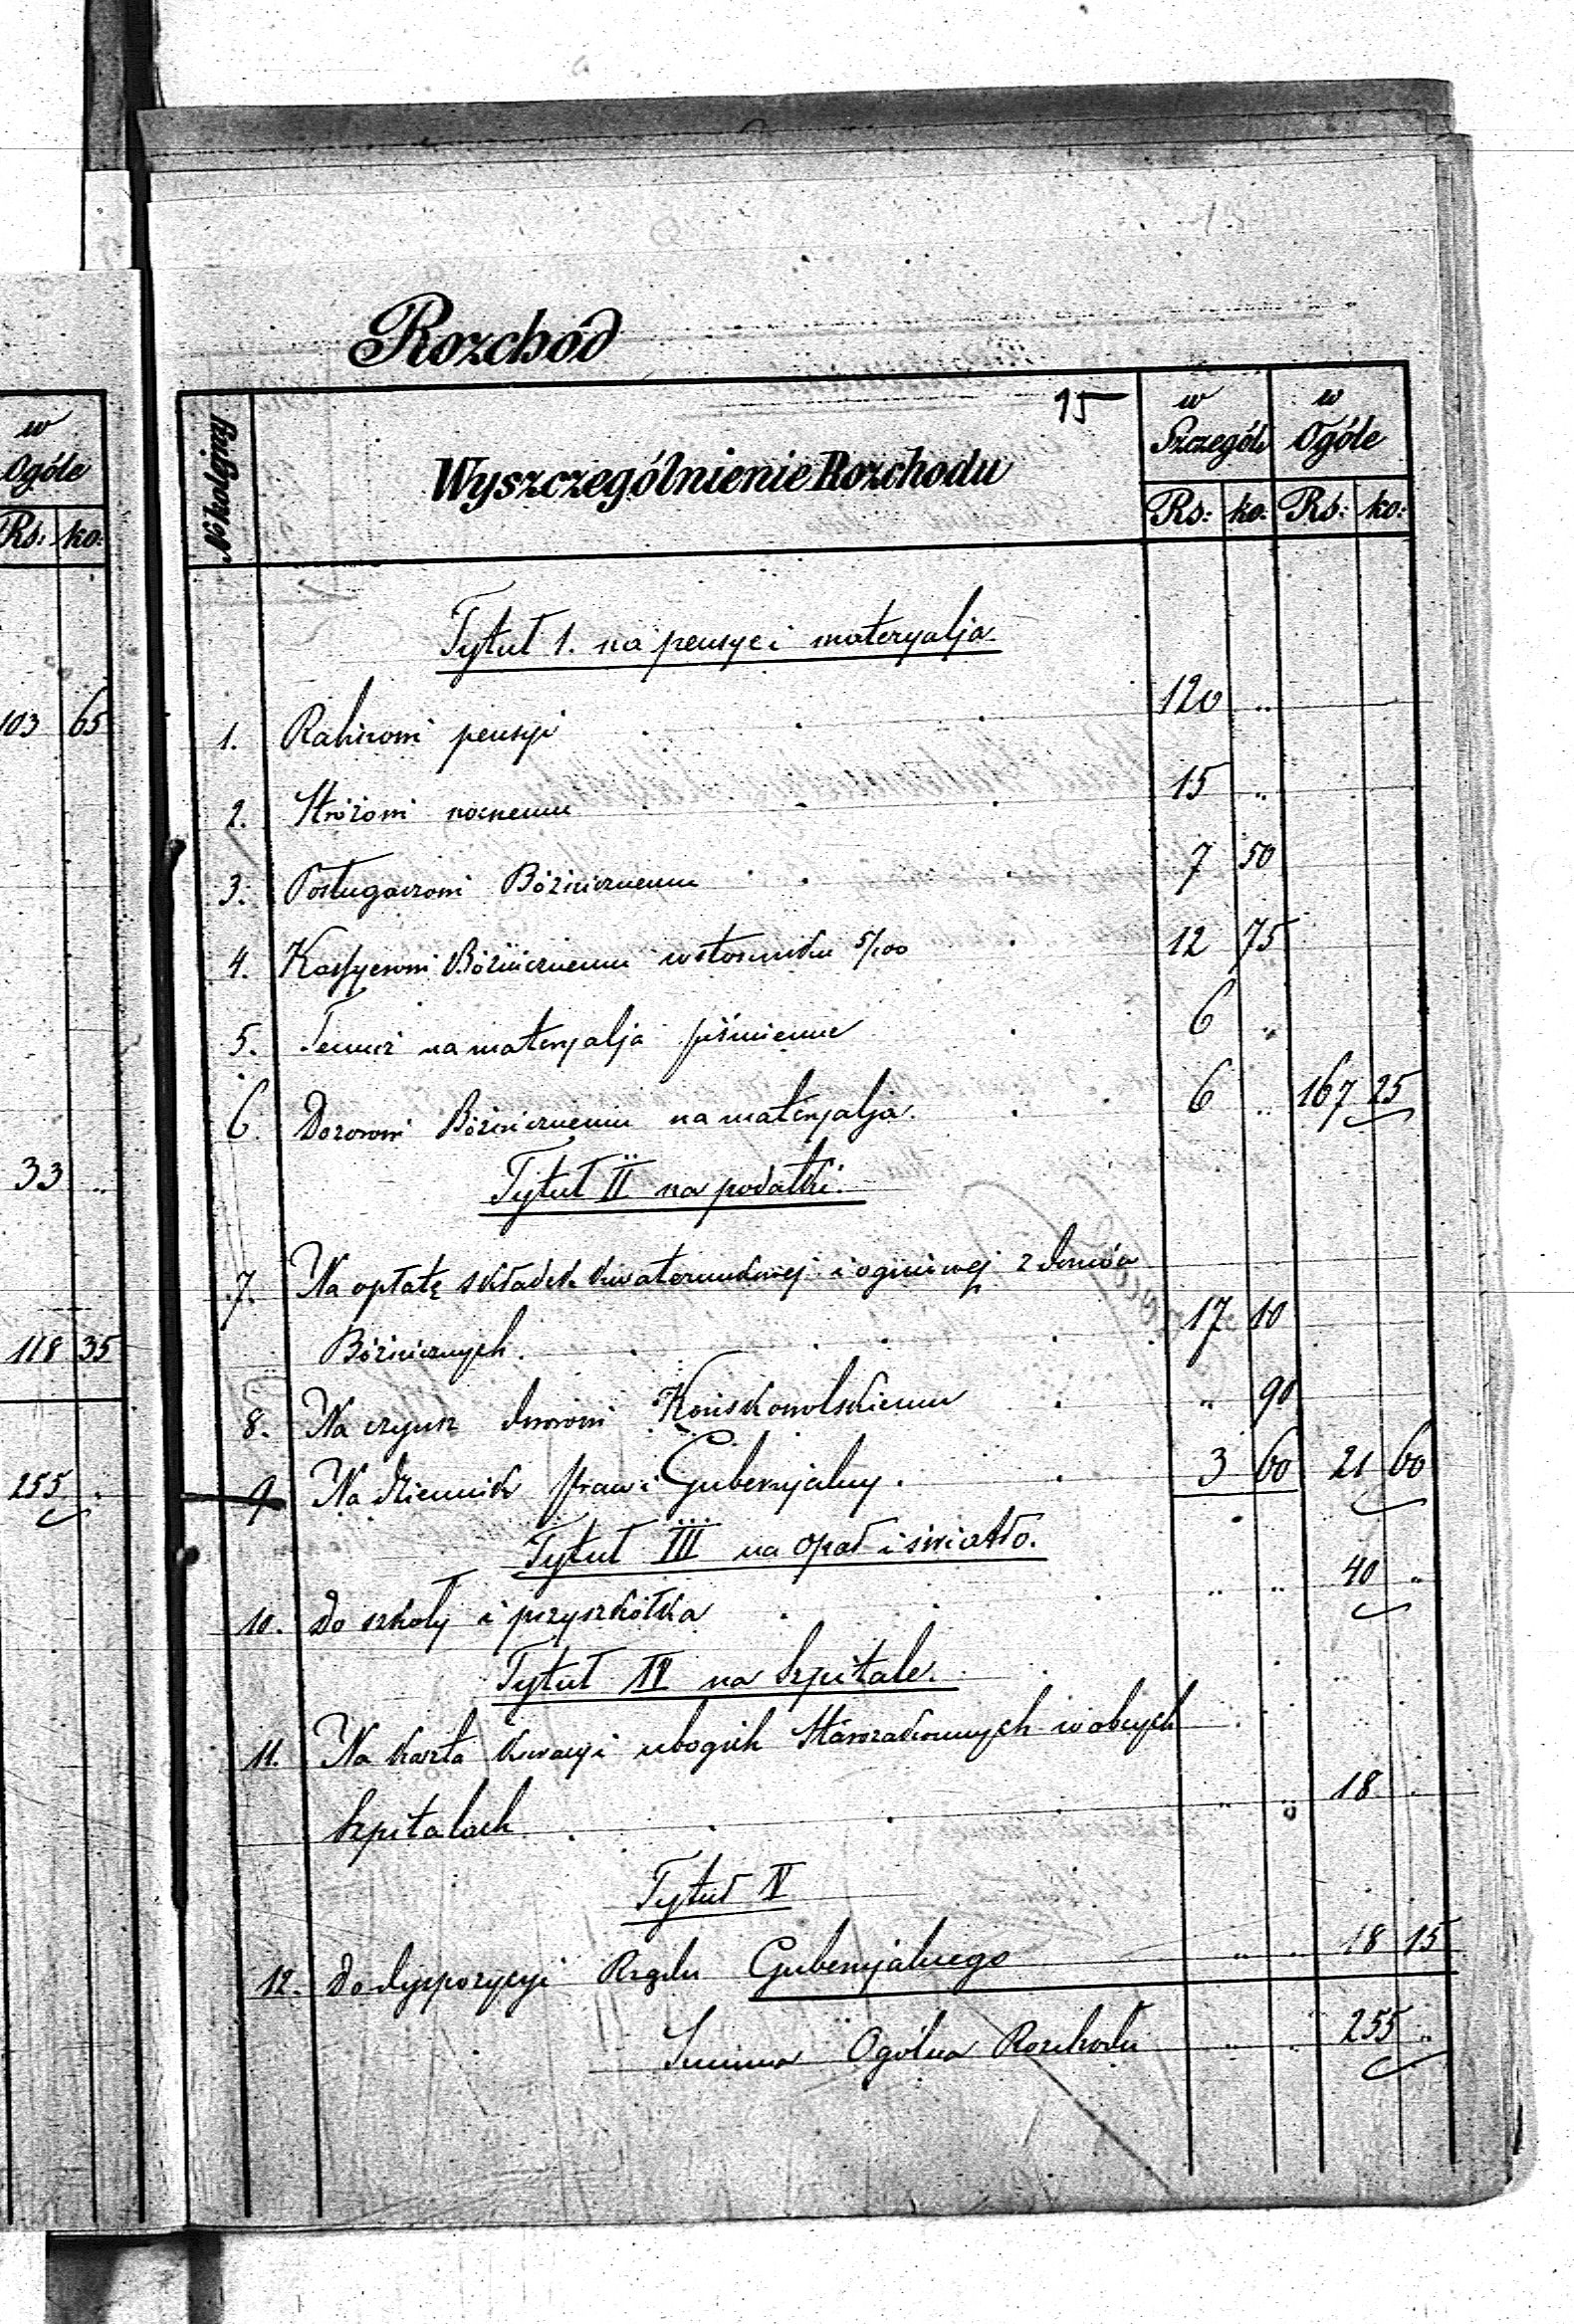 w
Ogóle
Rs: ko:
103 65
33 "
118 35
255 "
Rozchód
15
№ kolejny
Wyszczególnienie Rozchodu
w Szczególe
w Ogóle
Rs: ko: Rs: ko:
Tytuł 1. na pensye i materyalja
1. Rabinowi pensyi 120 "
2. Stróżowi nocnemu 15 "
3. Posługaczowi Bóżnicznemu 7 50
4. Kassyerowi Bóżnicznemu w stosunku 5/100 12 75
5. Temuż na materyalja piśmienne 6 "
6. Dozorowi Bóżnicznemu na materyalja. 6 " 167 25
Tytuł II na podatki.
7. Na opłatę składek kwaterunkowej i ogniowej z domów
Bóżnicznych. 17 10
8. Na czynsz dworowi Końskowolskiemu " 90
9 Na dziennik praw i Gubernjalny. 3 60 21 60
Tytuł III na opał i światło.
10. Do szkoły i przyszkółka " " 40 "
Tytuł IV na Szpitale.
11. Na koszta kuracyi ubogich Starozakonnych w obcych
Szpitalach " " 18 "
Tytuł V
12. Do dyspozycyi Rządu Gubernjalnego " " 18 15
Summa Ogólna Rozchodu " " 255 "